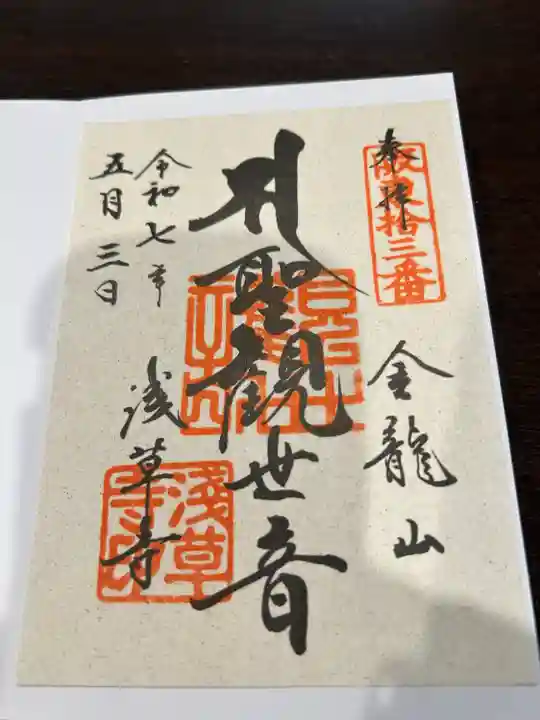 奉拝
坂東拾三番
金龍山
聖観世音
浅草寺
令和七年
五月三日